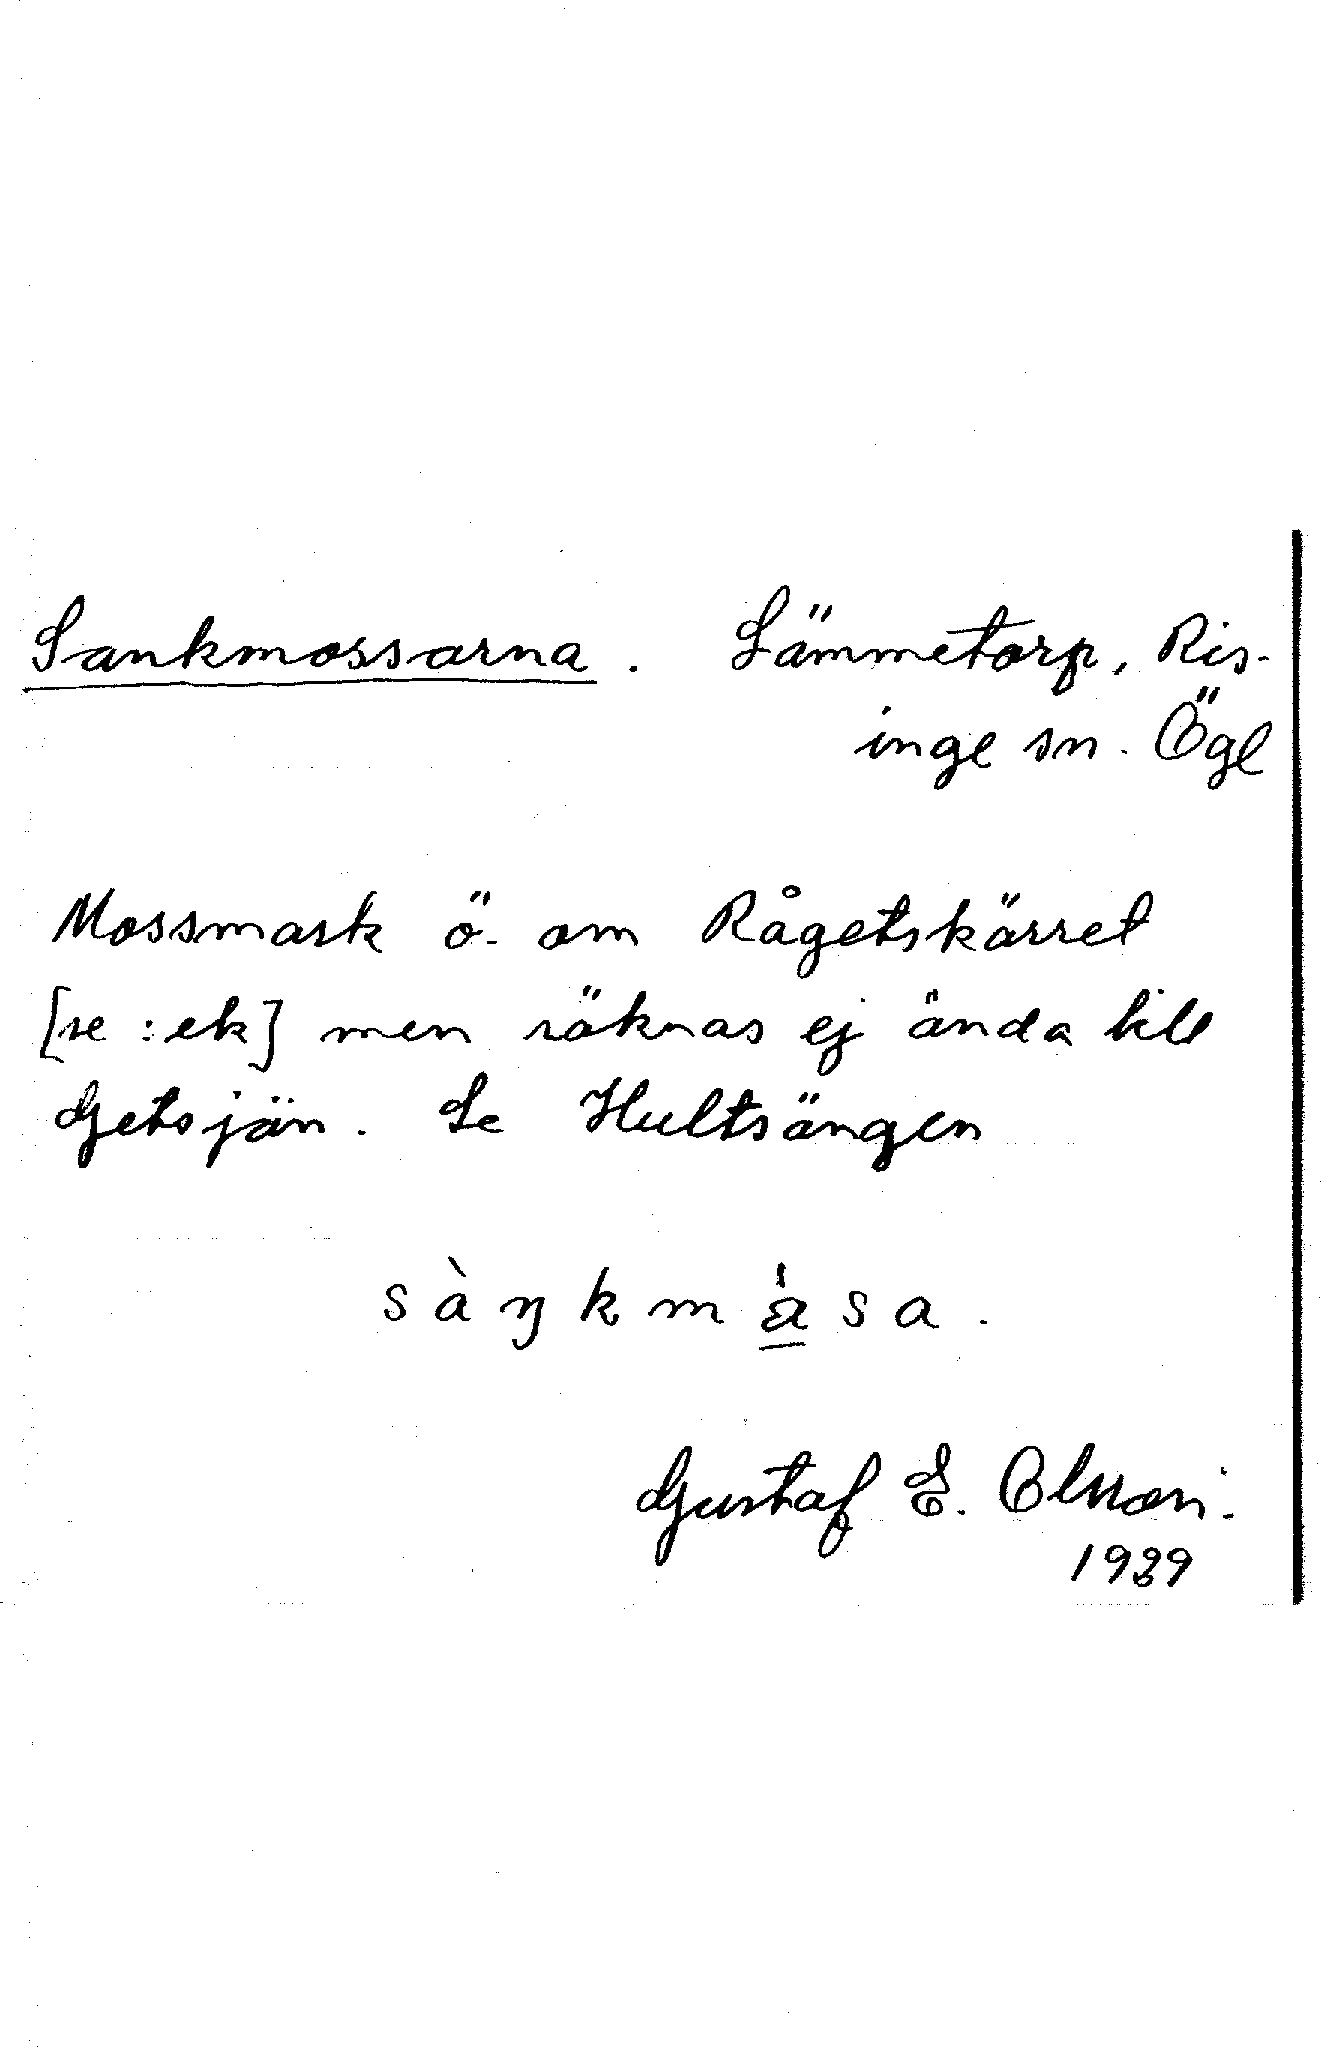 Sankmossarna. Sämmetorp, Ris-
inge sn. Ögl
Mossmark ö. om Rågetskärret
[se :ek] men räknas ej ända till
Getsjön. Se Hultsängen
sàŋkmåsa.
Gustaf E. Olsson.
1939